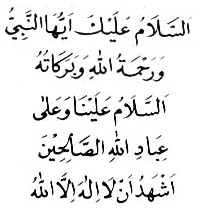 اَلسَّلَامُ عَلَيْكَ اَيُّهَا النَّبِيُّ
وَرَحْمَةُ اللهِ وَبَرَكَاتُهُ
اَلسَّلَامُ عَلَيْنَا وَعَلٰى
عِبَادِ اللهِ الصَّالِحِيْنَ
اَشْهَدُ اَنْ لَا اِلٰهَ اِلَّا اللهُ